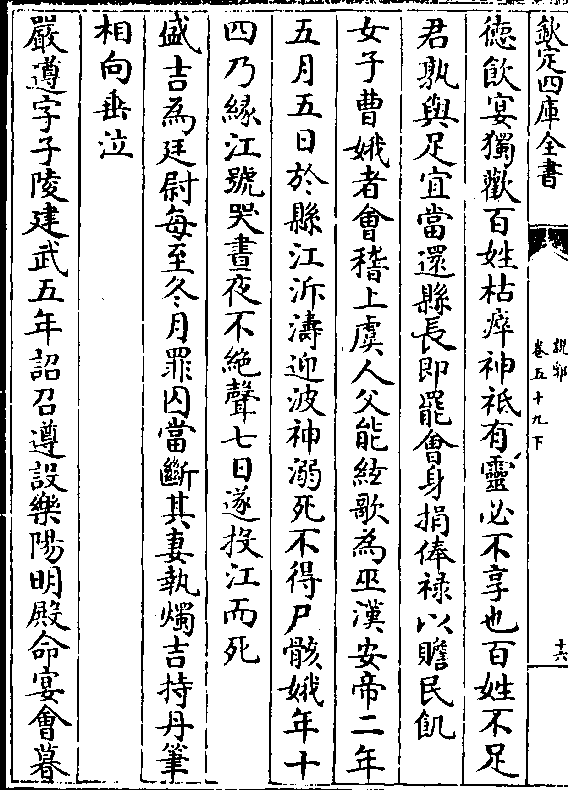 欽定四庫全書
說郛
卷五十九下
十六
德飲宴獨歡百姓枯瘁神祗有靈必不享也百姓不足
君孰與足宜當還縣長即罷會身捐俸祿以贍民飢
女子曹娥者會稽上虞人父能絃歌為巫漢安帝二年
五月五日於縣江泝濤迎波神溺死不得尸骸娥年十
四乃緣江號哭晝夜不絶聲七日遂投江而死
盛吉為廷尉每至冬月罪囚當斷其妻執燭吉持丹筆
相向垂泣
嚴遵字子陵建武五年詔召遵設樂陽明殿命宴會暮